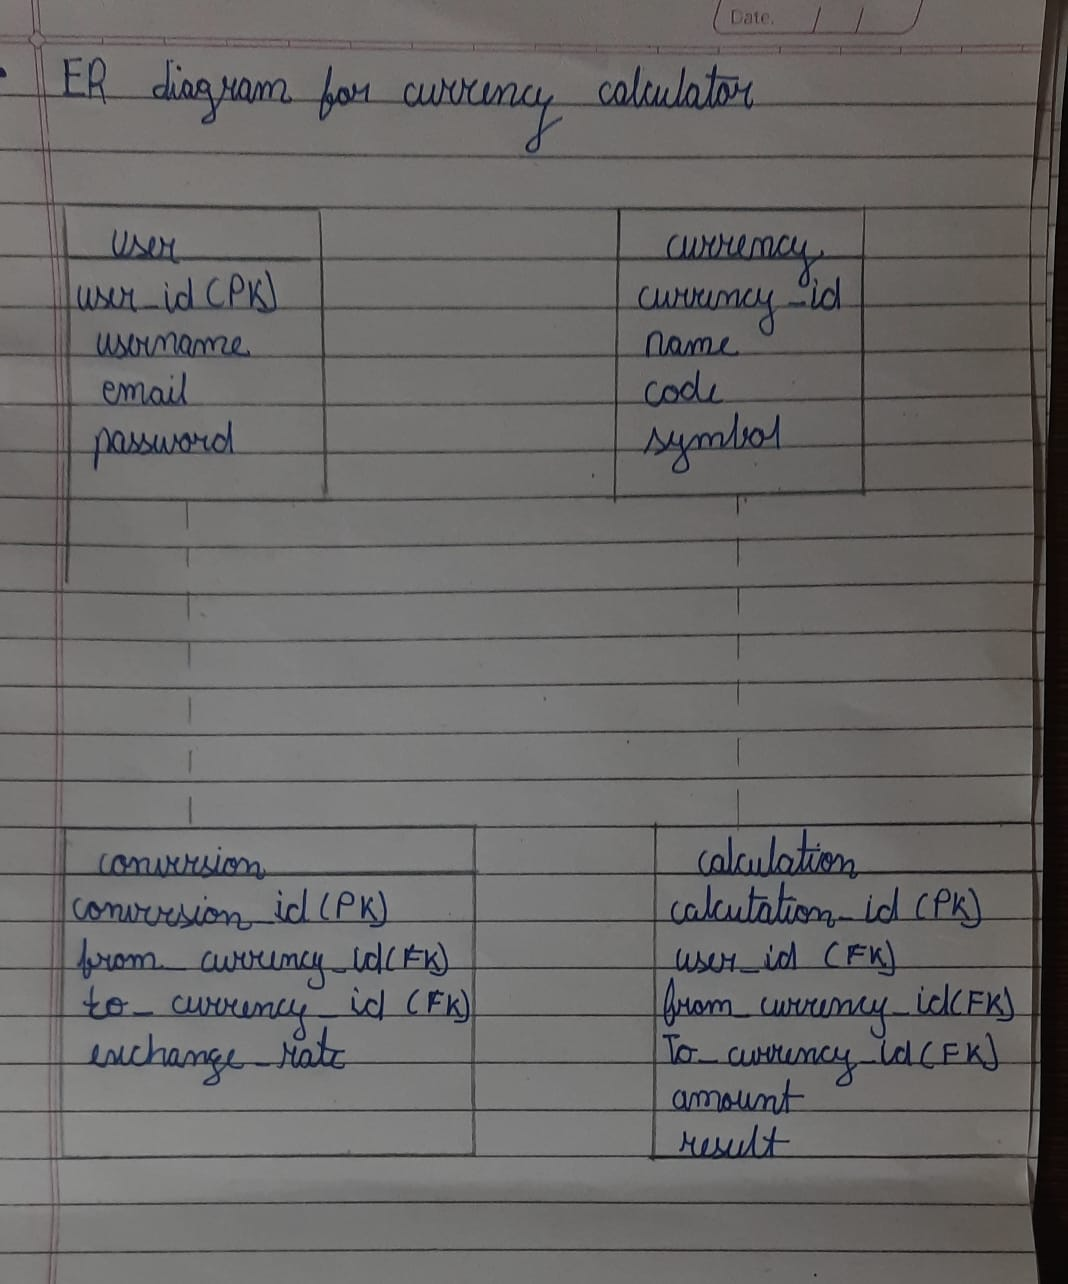 Date. / /
ER diagram for currency calculator
user
user_id (PK)
username
email
password
currency
currency_id
name
code
symbol
conversion
conversion_id (PK)
from_currency_id (FK)
to_currency_id (FK)
exchange_rate
calculation
calcutation_id (PK)
user_id (FK)
from_currency_id (FK)
To_currency_id (FK)
amount
result